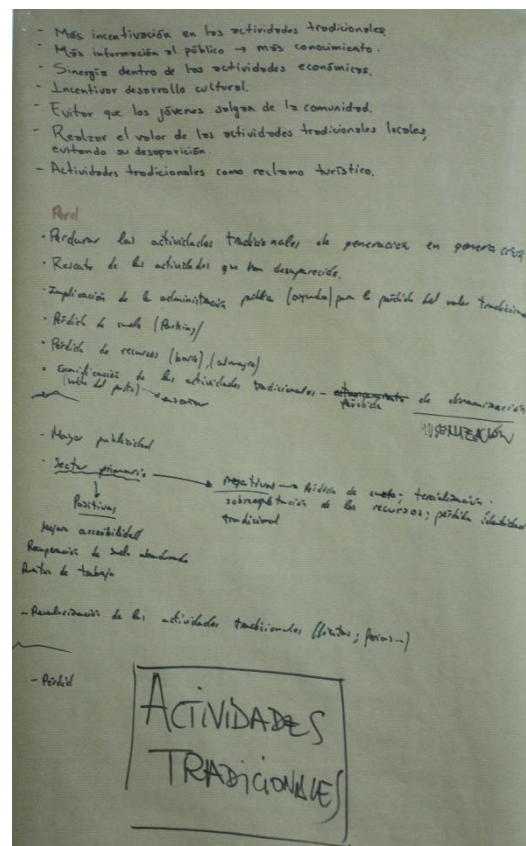 - Más incentivación en las actividades tradicionales.
- Más información al público → más conocimiento.
- Sinergia dentro de las actividades económicas.
- Incentivar desarrollo cultural.
- Evitar que los jóvenes salgan de la comunidad.
- Realzar el valor de las actividades tradicionales locales,
evitando su desaparición.
- Actividades tradicionales como reclamo turístico.
Perd
· Perdurar las actividades tradicionales de generación en generación
· Rescate de las actividades que han desaparecido.
· Implicación de la administración pública (ayudas) por la pérdida del valor tradicional
· Pérdida de suelo (Parking)
· Pérdida de recursos (barro), (almagre)
· de las actividades tradicionales - Pérdida de
- Mayor publicidad
- Sector primario → negativas → Pérdida de suelo; terciarización.
sobreexplotación de los recursos; pérdida identidad
tradicional
Positivas
Mejora accesibilidad
Recuperación de suelo abandonado
Puestos de trabajo
- Revalorización de las actividades tradicionales (fiestas; ferias...)
- Pérdid
ACTIVIDADES
TRADICIONALES